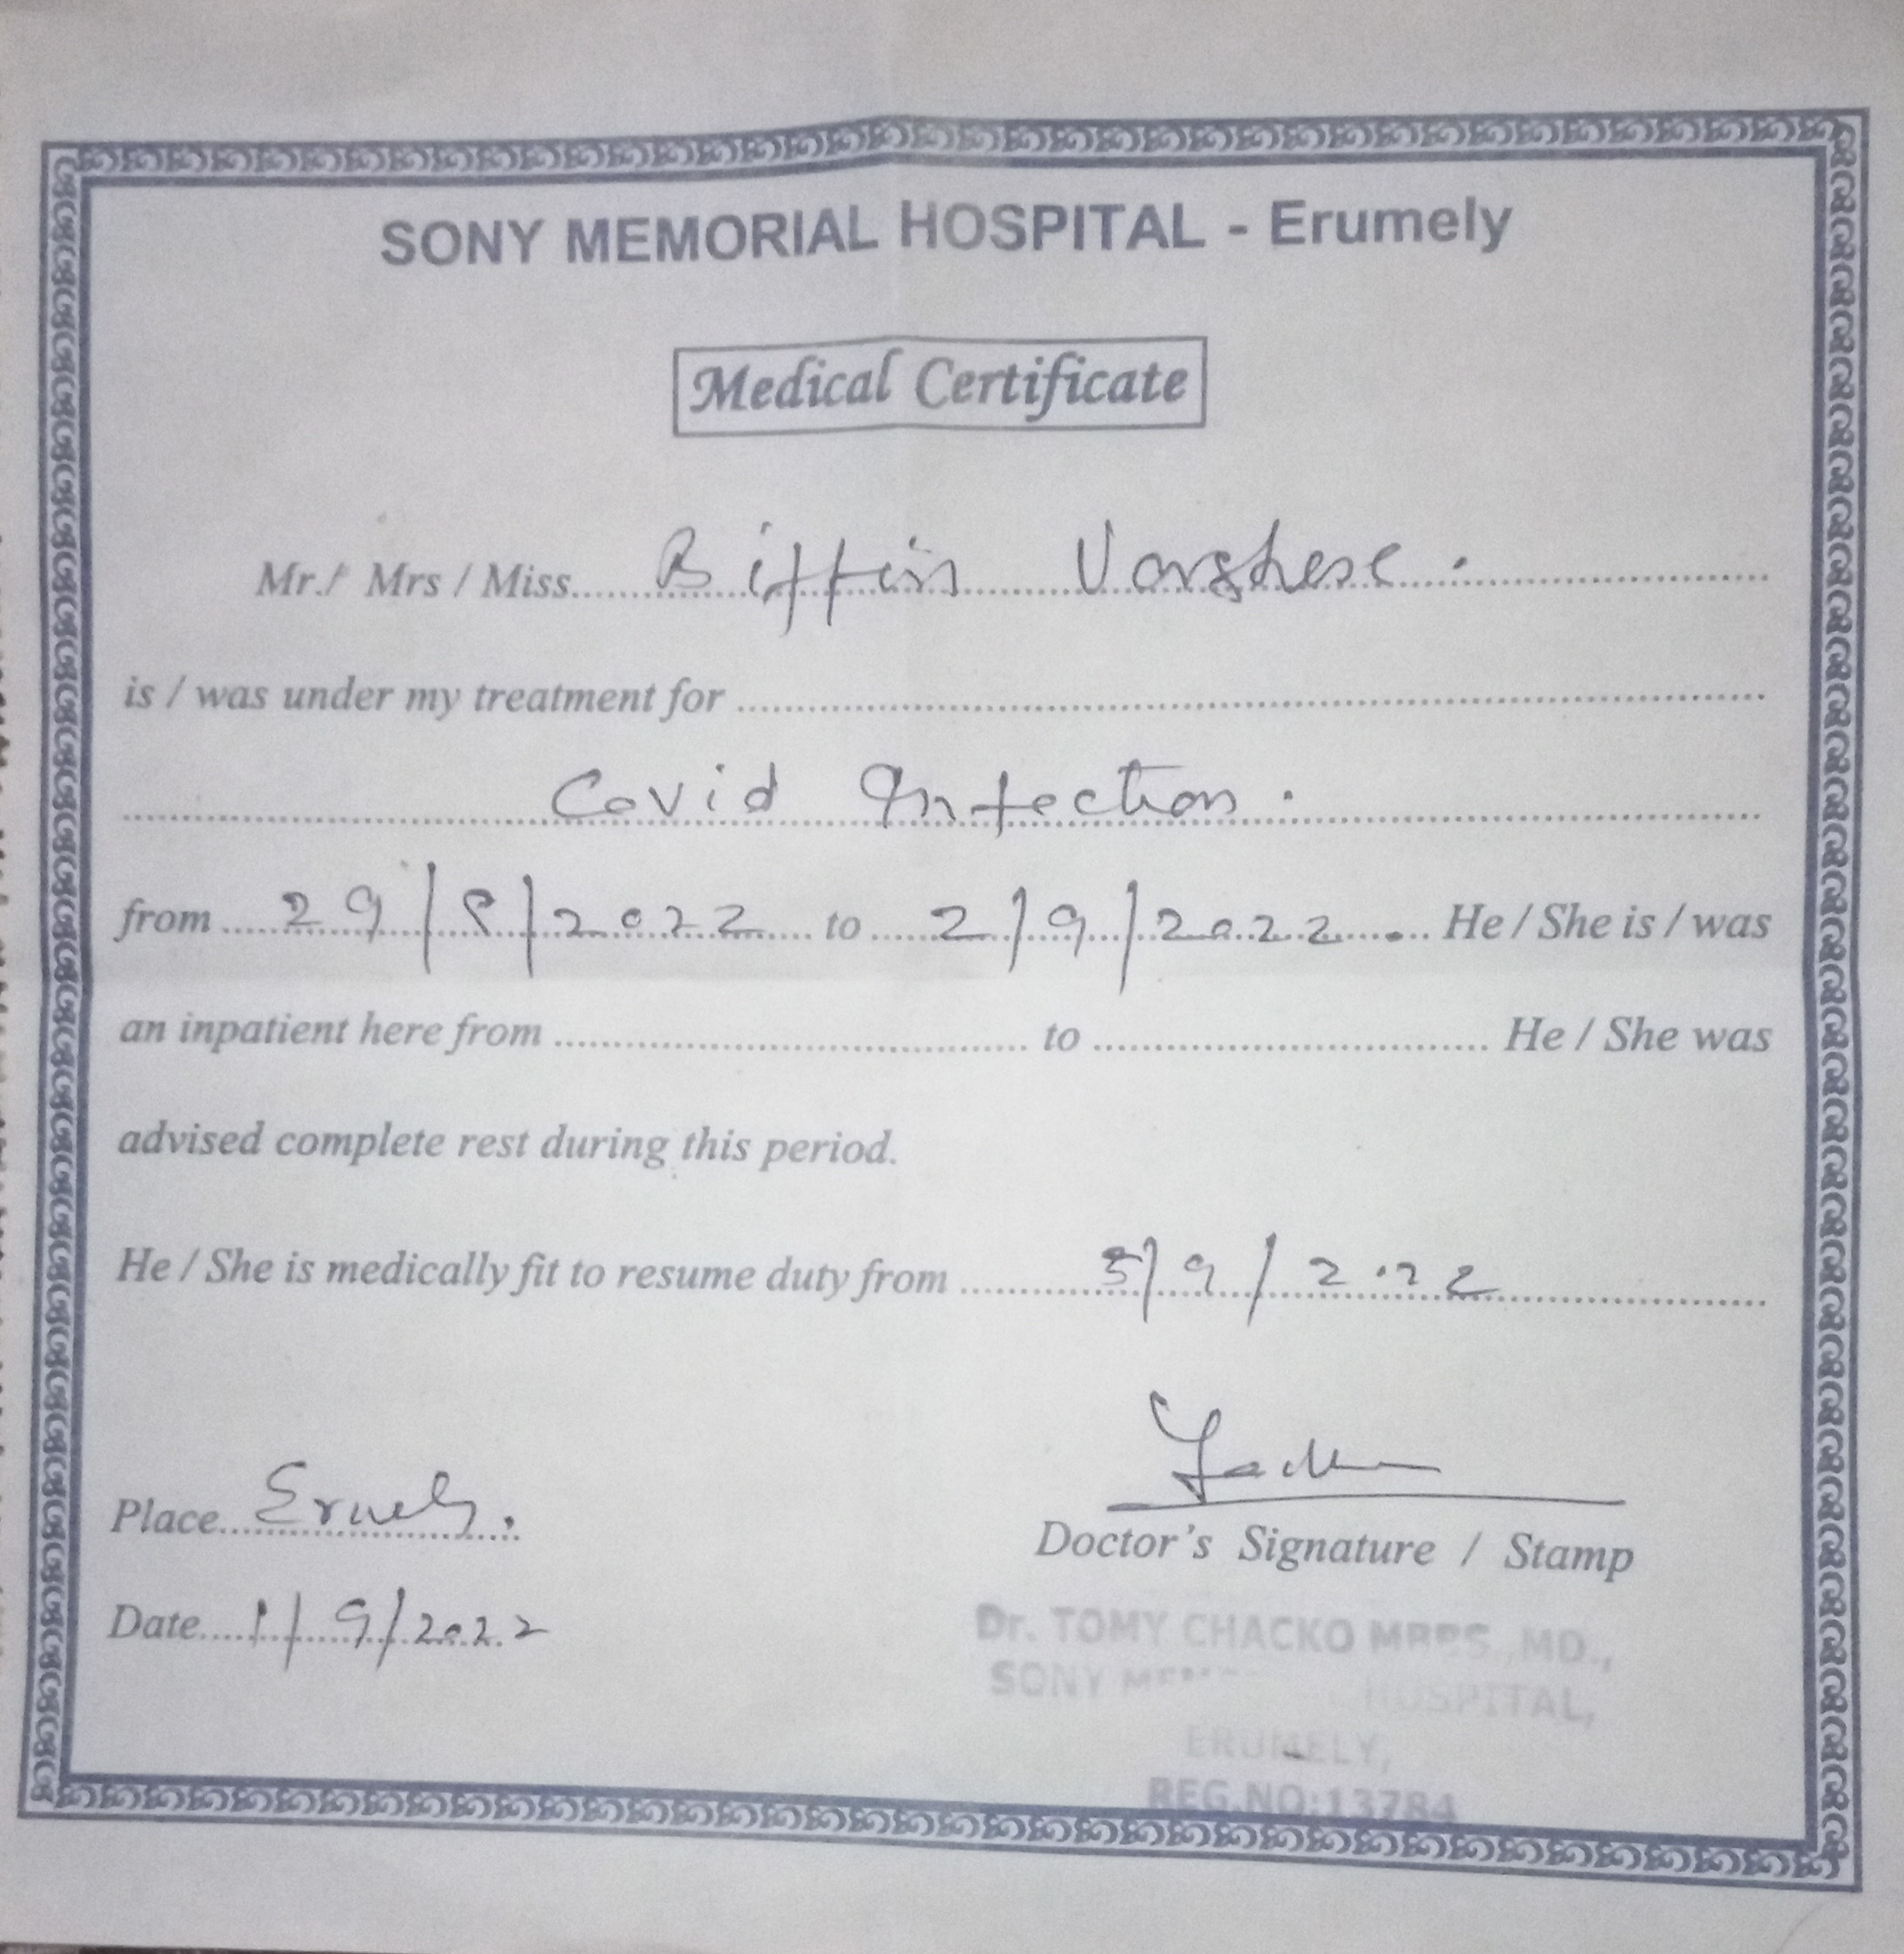 SONY MEMORIAL HOSPITAL - Erumely
Medical Certificate
Mr./ Mrs / Miss...... Varghese.
is / was under my treatment for
Covid Infection.
from 29/8/2022 to 2/9/2022. He / She is / was
an inpatient here from to He / She was
advised complete rest during this period.
He / She is medically fit to resume duty from /9/2022
Doctor's Signature / Stamp
Place
Date 1/9/2022
Dr. TOMY CHACKO MBBS, MD.,
SONY HOSPITAL,
ERUMELY,
REG.NO:13784